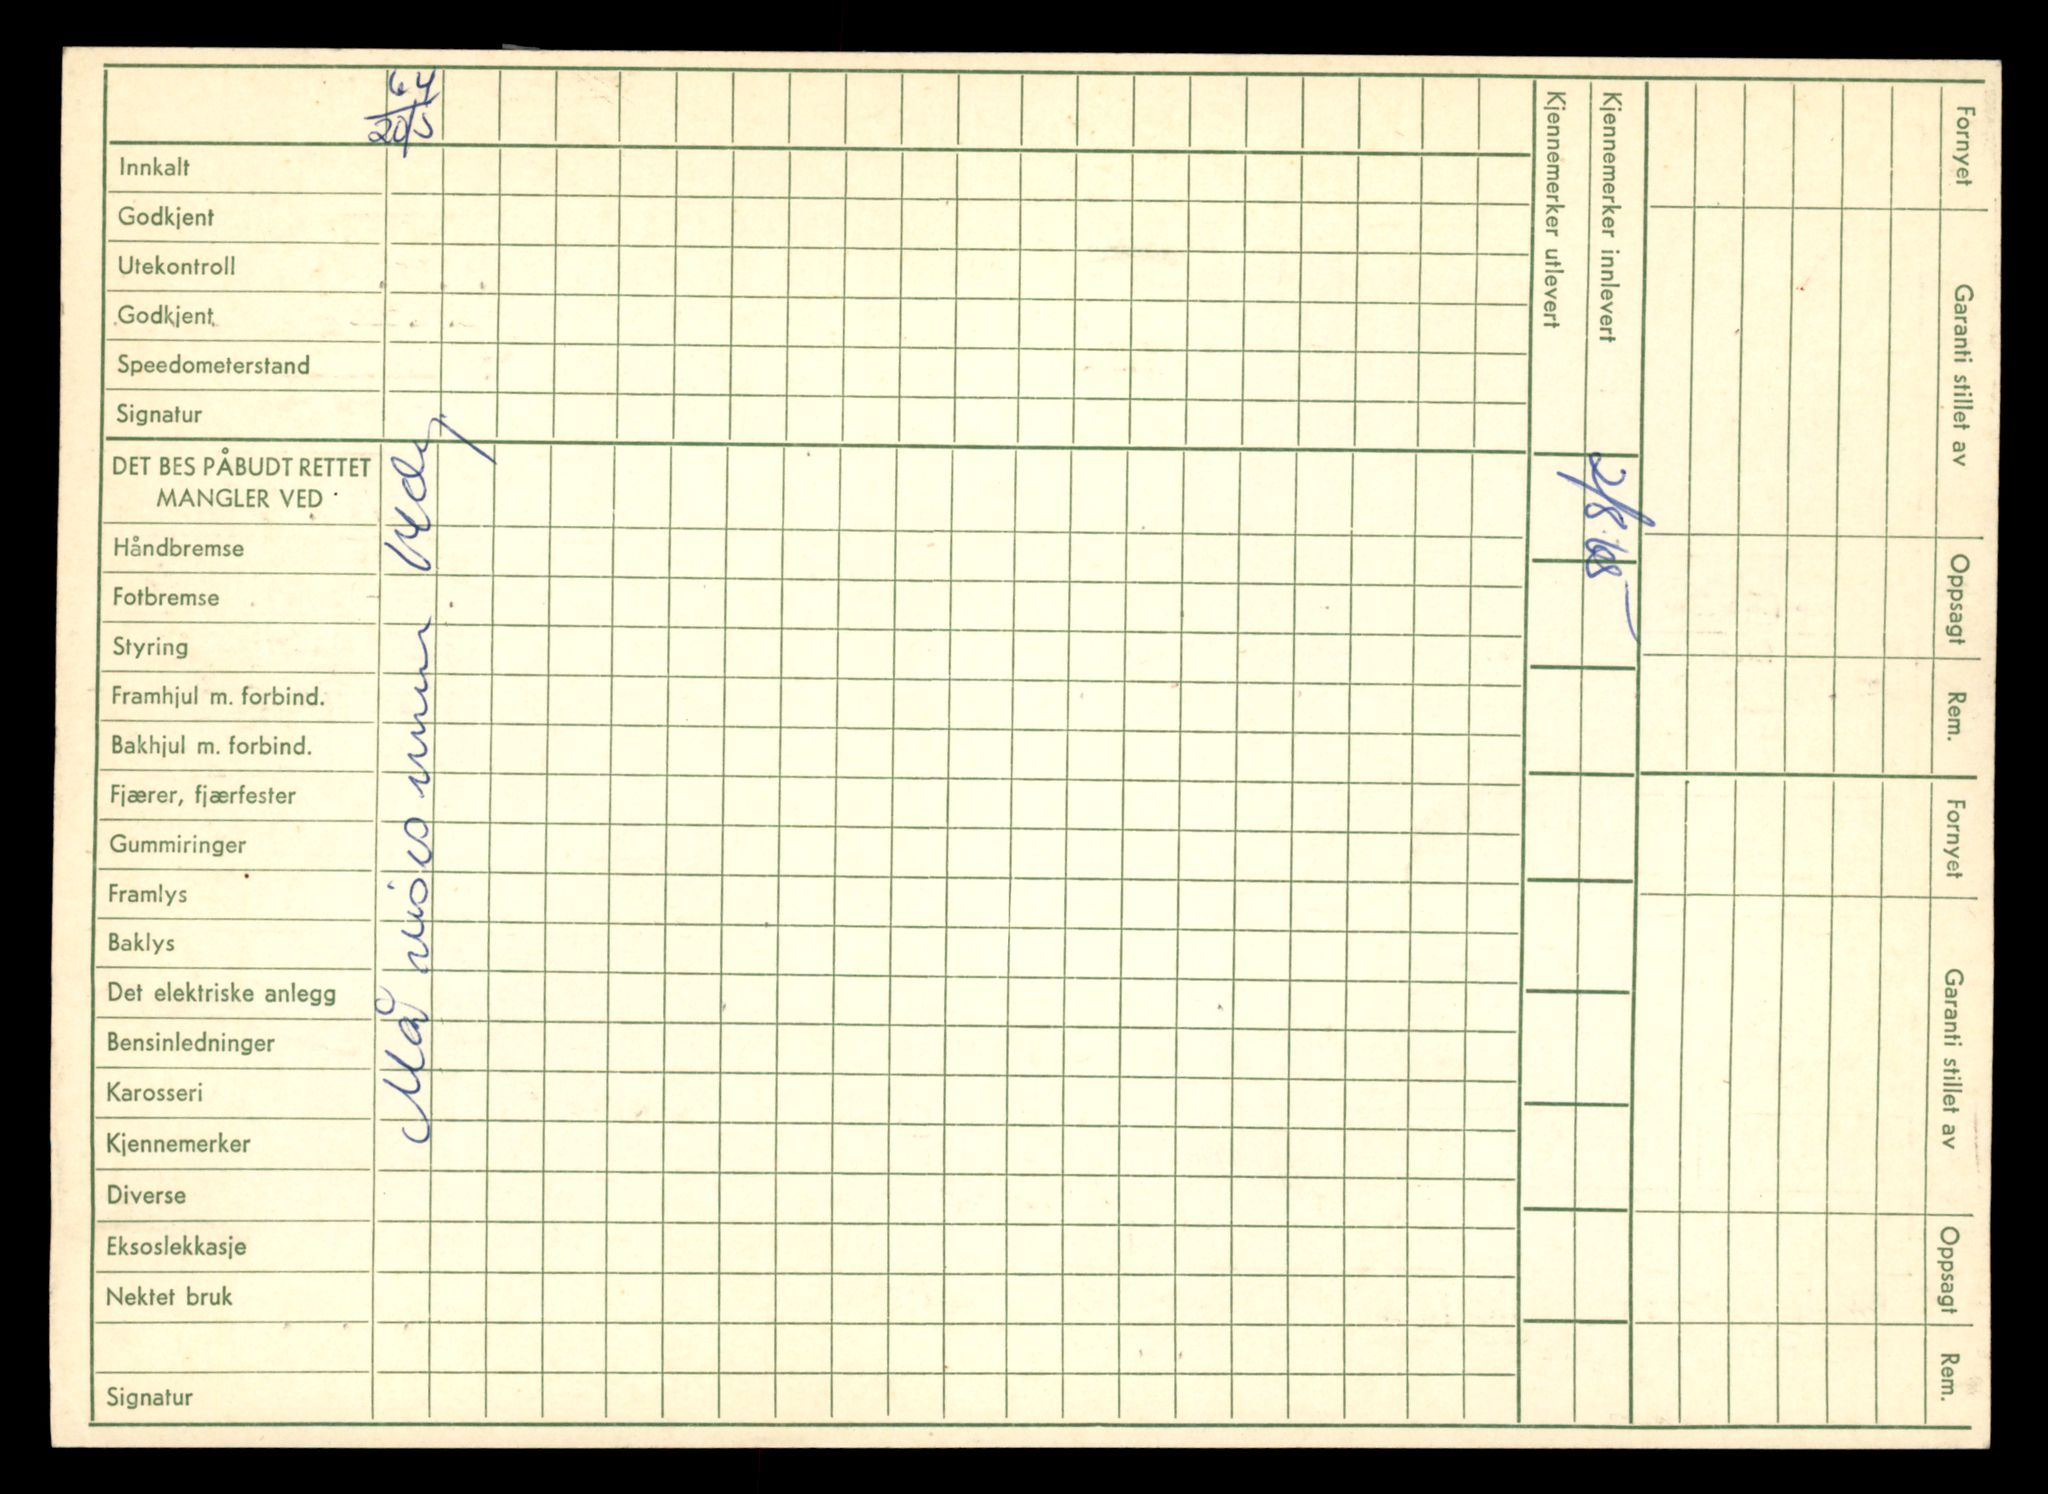 64
20/5
Innkalt
Godkjent
Utekontroll
Godkjent
Speedometerstand
Signatur
DET BES PÅBUDT RETTET
MANGLER VED
Håndbremse
Fotbremse
Styring
Framhjul m. forbind.
Bakhjul m. forbind.
Fjærer, fjærfester
Gummiringer
Framlys
Baklys
Det elektriske anlegg
Bensinledninger
Karosseri
Kjennemerker
Diverse
Eksoslekkasje
Nektet bruk
Signatur
Må vises innen
Kjennemerker utlevert
Kjennemerker innlevert
2/8
Fornyet
Garanti stillet av
Oppsagt
Rem.
Fornyet
Garanti stillet av
Oppsagt
Rem.